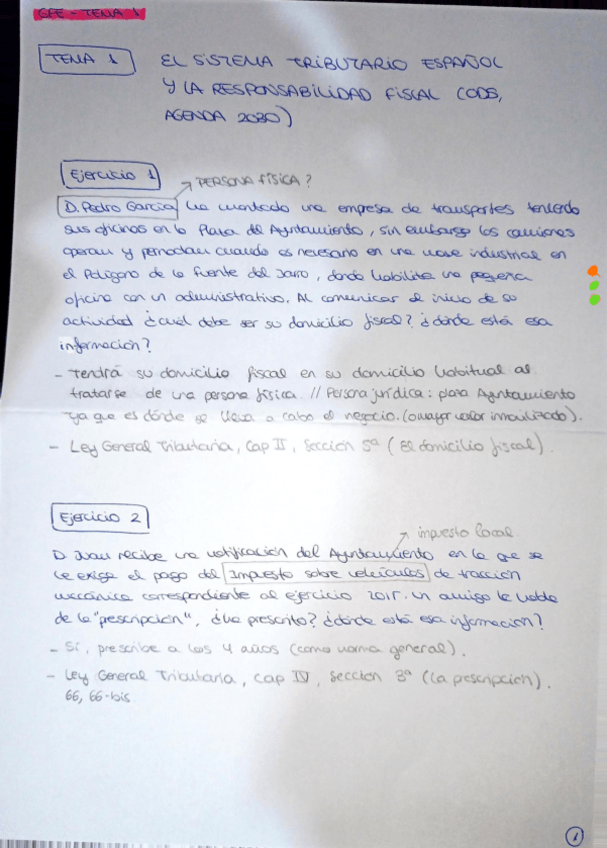 GFE - TEMA 1
TEMA 1 EL SISTEMA TRIBUTARIO ESPAÑOL
Y LA RESPONSABILIDAD FISCAL (ODS,
AGENDA 2030)
Ejercicio 1 → PERSONA FÍSICA?
D. Pedro García ha montado una empresa de transportes teniendo
sus oficinas en la Plaza del Ayuntamiento, sin embargo los camiones
operan y pernoctan cuando es necesario en una nave industrial en
el Polígono de la Fuente del Jarro, donde habilita una pequeña
oficina con un administrativo. Al comunicar el inicio de su
actividad ¿cuál debe ser su domicilio fiscal? ¿dónde está esa
información?
- Tendrá su domicilio fiscal en su domicilio habitual al
tratarse de una persona física. // Persona jurídica: plaza Ayuntamiento
ya que es dónde se lleva a cabo el negocio. (o mayor valor inmovilizado).
- Ley General Tributaria, Cap II, Sección 5ª (El domicilio fiscal).
Ejercicio 2
→ impuesto local
D. Juan recibe una notificación del Ayuntamiento en la que se
le exige el pago del Impuesto sobre vehículos de tracción
mecánica correspondiente al ejercicio 2015. Un amigo le habla
de la "prescripción", ¿ha prescrito? ¿dónde está esa información?
- Sí, prescribe a los 4 años (como norma general).
- Ley General Tributaria, Cap IV, Sección 3ª (La prescripción).
66, 66-bis
1